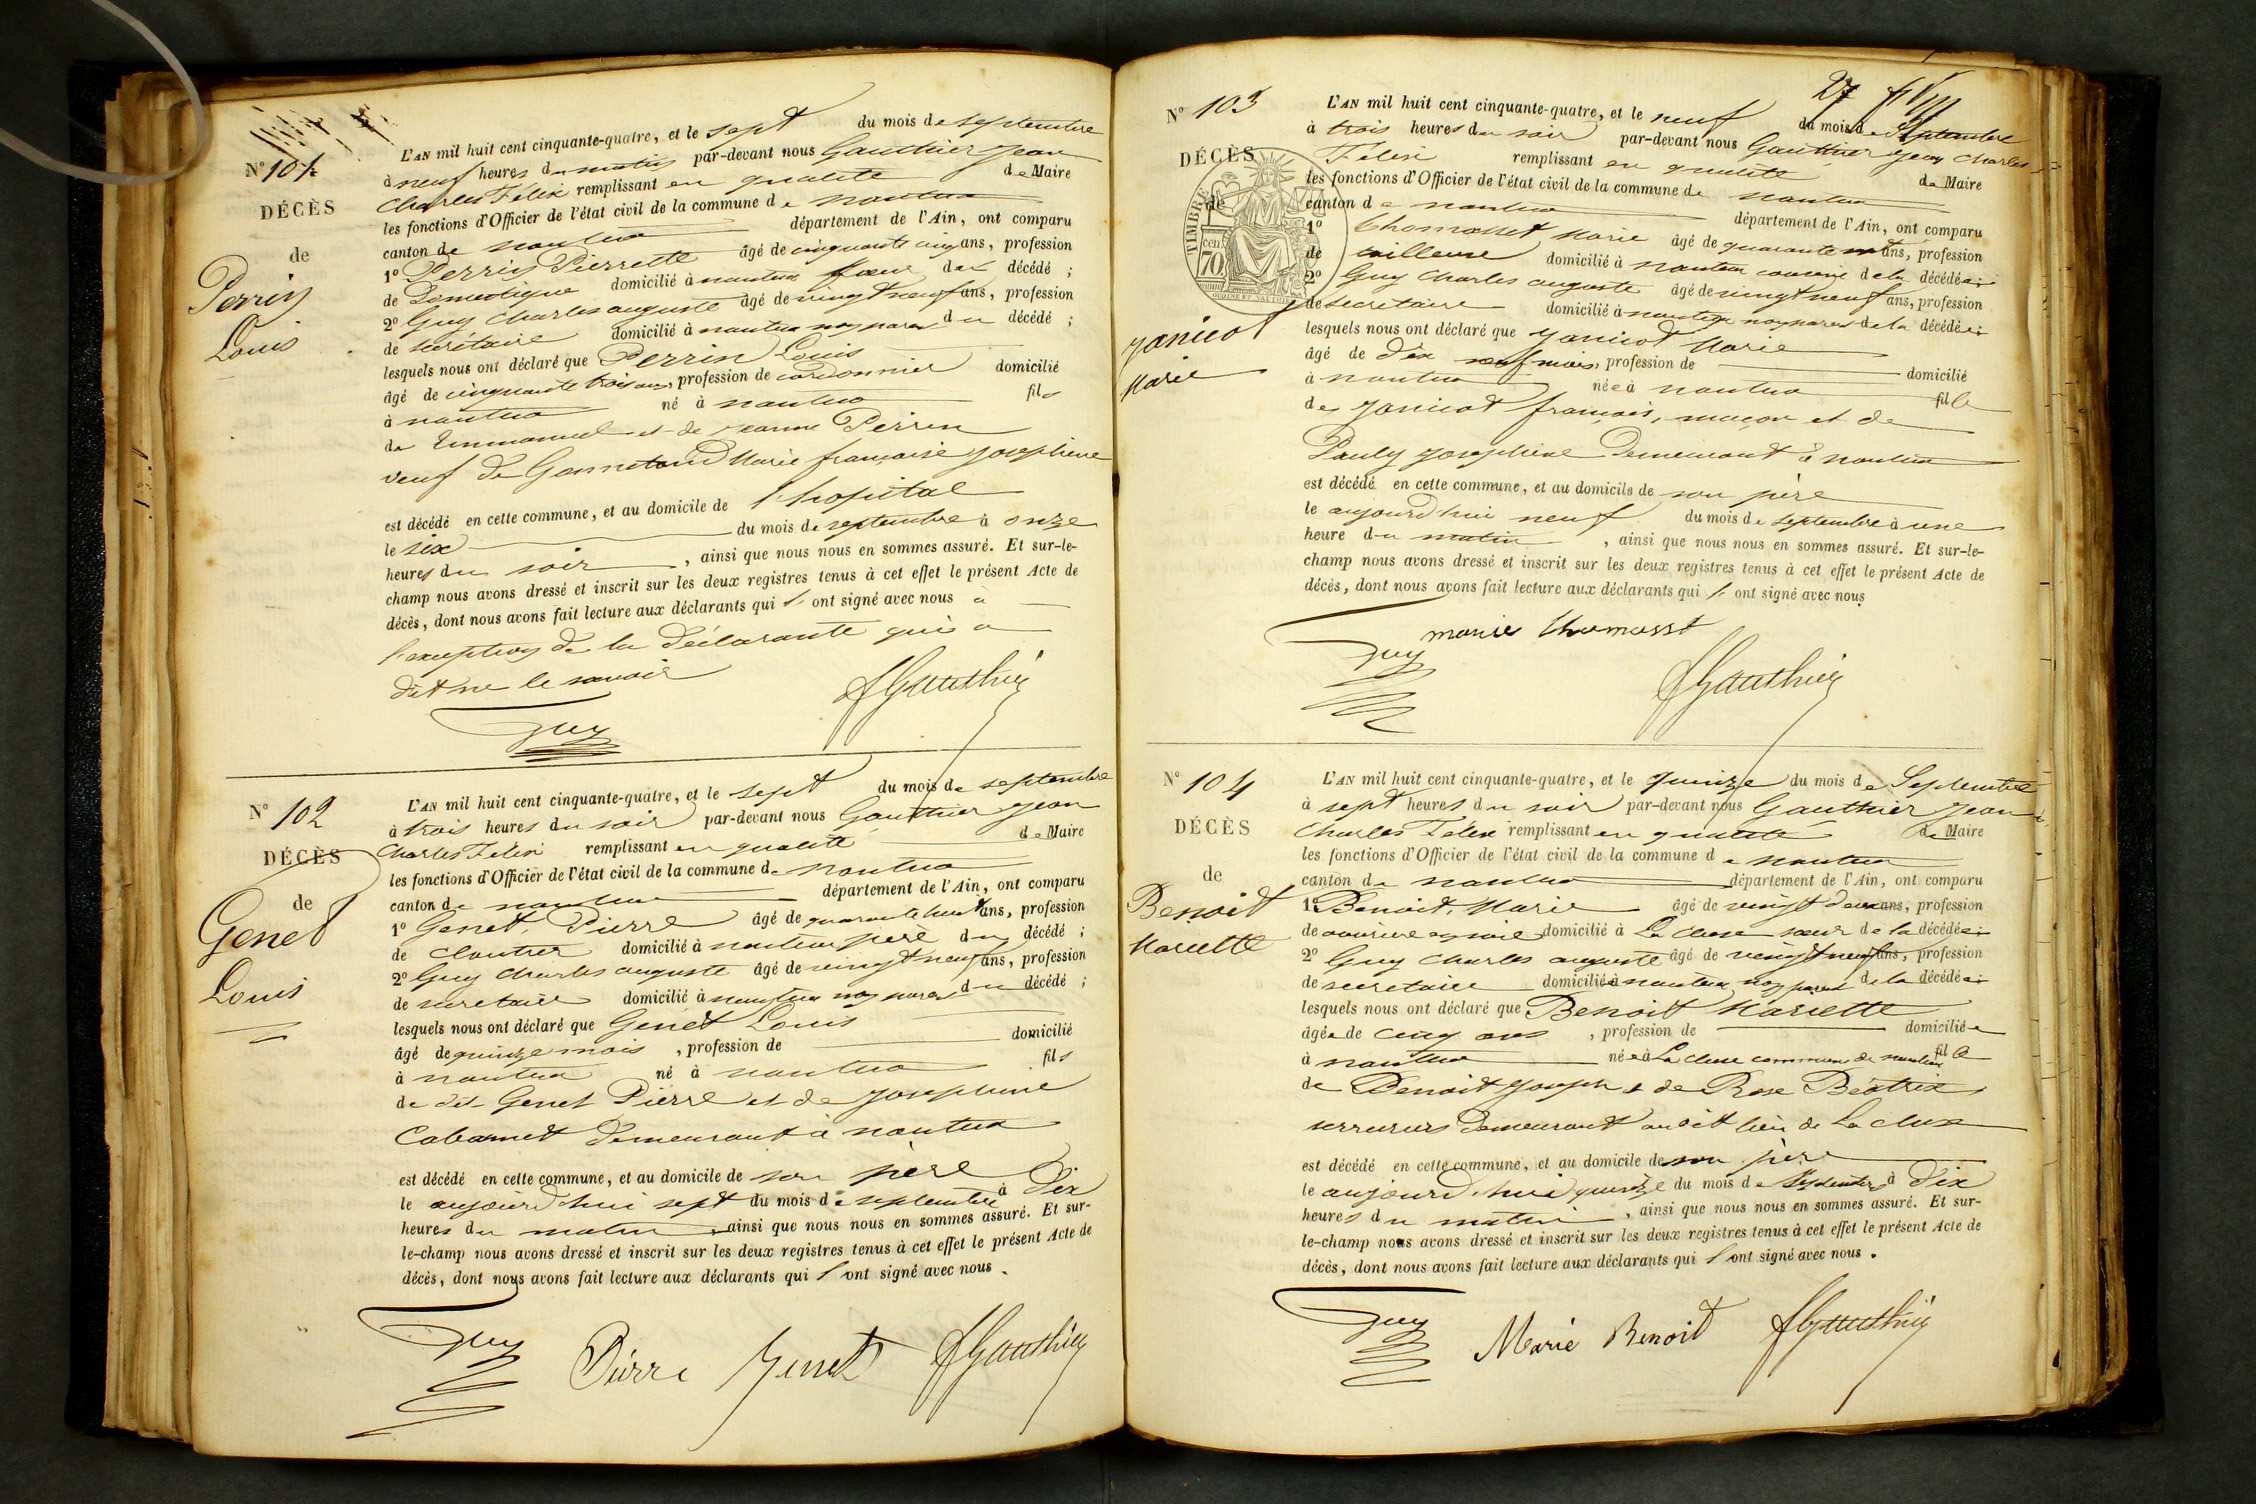 N° 101
DÉCÈS
de
Perrin
Louis
L'AN mil huit cent cinquante-quatre, et le sept du mois de septembre
à neuf heures du matin par-devant nous Gauthier Jean
Charles Félix remplissant en qualité de Maire
les fonctions d'Officier de l'état civil de la commune de nantua
canton de nantua département de l'Ain, ont comparu
1° Perrin Pierrette âgé de cinquante cinq ans, profession
de Domestique domicilié à nantua sœur du décédé ;
2° Guy Charles auguste âgé de vingt neuf ans, profession
de secrétaire domicilié à nantua non parent du décédé ;
lesquels nous ont déclaré que Perrin Louis
âgé de cinquante trois ans, profession de cordonnier domicilié
à nantua né à nantua fils
de Emmanuel et de Jeanne Perrin
veuf de Marie françoise Josephine
est décédé en cette commune, et au domicile de l'hopital
le six du mois de septembre à onze
heures du soir, ainsi que nous nous en sommes assuré. Et sur-le-
champ nous avons dressé et inscrit sur les deux registres tenus à cet effet le présent Acte de
décès, dont nous avons fait lecture aux déclarants qui l' ont signé avec nous a
l'exception de la déclarante qui a
dit ne le savoir
Guy
fGauthier
N° 102
DÉCÈS
de
Genet
Louis
L'AN mil huit cent cinquante-quatre, et le sept du mois de septembre
à trois heures du soir par-devant nous Gauthier Jean
Charles Félix remplissant en qualité de Maire
les fonctions d'Officier de l'état civil de la commune de nantua
canton de nantua département de l'Ain, ont comparu
1° Genet, Pierre âgé de quarante huit ans, profession
de cloutier domicilié à nantua père du décédé ;
2° Guy Charles auguste âgé de vingt neuf ans, profession
de secretaire domicilié à nantua non parent du décédé ;
lesquels nous ont déclaré que Genet Louis
âgé de quinze mois, profession de domicilié
à nantua né à nantua fils
de dit Genet Pierre et de Josephine
Cabarnet demeurant à nantua
est décédé en cette commune, et au domicile de son père
le aujourd'hui sept du mois de septembre à Dix
heures du matin, ainsi que nous nous en sommes assuré. Et sur-
le-champ nous avons dressé et inscrit sur les deux registres tenus à cet effet le présent Acte de
décès, dont nous avons fait lecture aux déclarants qui l' ont signé avec nous.
Guy
Pierre Genet
fGauthier
27
N° 103
DÉCÈS
de
TIMBRE
70
Janicot
Marie
L'AN mil huit cent cinquante-quatre, et le neuf du mois de Septembre
à trois heures du soir par-devant nous Gauthier Jean Charles
Félix remplissant en qualité de Maire
les fonctions d'Officier de l'état civil de la commune de nantua
canton de nantua département de l'Ain, ont comparu
1° Thomasset Marie âgé de quarante ans, profession
de tailleuse domicilié à nantua cousine de la décédée ;
2° Guy Charles auguste âgé de vingt neuf ans, profession
de secretaire domicilié à nantua non parent de la décédée ;
lesquels nous ont déclaré que Janicot Marie
âgé de dix neuf mois, profession de domicilié
à nantua née à nantua fille
de Janicot françois, maçon et de
Pauly Josephine Demeurant à nantua
est décédé en cette commune, et au domicile de son père
le aujourd'hui neuf du mois de septembre à une
heure du matin, ainsi que nous nous en sommes assuré. Et sur-le-
champ nous avons dressé et inscrit sur les deux registres tenus à cet effet le présent Acte de
décès, dont nous avons fait lecture aux déclarants qui l' ont signé avec nous
marie thomasst
Guy
fGauthier
N° 104
DÉCÈS
de
Benoit
Mariette
L'AN mil huit cent cinquante-quatre, et le quinze du mois de Septembre
à sept heures du soir par-devant nous Gauthier Jean
Charles Félix remplissant en qualité de Maire
les fonctions d'Officier de l'état civil de la commune de nantua
canton de nantua département de l'Ain, ont comparu
1° Benoit, Marie âgé de vingt deux ans, profession
de ouvriere en soie domicilié à La cluse sœur de la décédée ;
2° Guy Charles auguste âgé de vingt neuf ans, profession
de secretaire domicilié à nantua non parent de la décédée ;
lesquels nous ont déclaré que Benoit Mariette
âgée de cinq ans, profession de domiciliée
à nantua née à La cluse commune de nantua fille
de Benoit Joseph & de Rose Béatrix
serruriers Demeurant au dit lieu de La cluse
est décédé en cette commune, et au domicile de son père
le aujourd'hui quinze du mois de Septembre à Dix
heures du matin, ainsi que nous nous en sommes assuré. Et sur-
le-champ nous avons dressé et inscrit sur les deux registres tenus à cet effet le présent Acte de
décès, dont nous avons fait lecture aux déclarants qui l' ont signé avec nous.
Guy
Marie Benoit
fGauthier